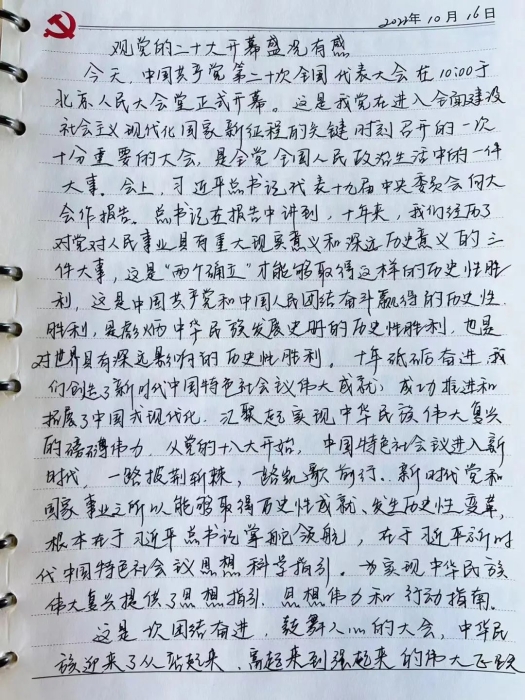 2022年10月16日
观党的二十大开幕盛况有感
今天,中国共产党第二十次全国代表大会在10:00于
北京人民大会堂正式开幕。这是我党在进入全面建设
社会主义现代化国家新征程的关键时刻召开的一次
十分重要的大会,是全党全国人民政治生活中的一件
大事。会上,习近平总书记代表十九届中央委员会向大
会作报告。总书记在报告中讲到,十年来,我们经历了
对党对人民事业具有重大现实意义和深远历史意义的三
件大事,这是“两个确立”才能够取得这样的历史性胜
利,这是中国共产党和中国人民团结奋斗赢得的历史性
胜利,是彪炳中华民族发展史册的历史性胜利,也是
对世界具有深远影响的历史性胜利。十年砥砺奋进,我
们创造了新时代中国特色社会议伟大成就,成功推进和
拓展了中国式现代化,汇聚起实现中华民族伟大复兴
的磅礴伟力。从党的十八大开始,中国特色社会议进入新
时代,一路披荆斩棘,一路凯歌前行。新时代党和
国家事业之所以能够取得历史性成就、发生历史性变革,
根本在于习近平总书记掌舵领航,在于习近平新时
代中国特色社会议思想科学指引。为实现中华民族
伟大复兴提供了思想指引、思想伟力和行动指南。
这是一次团结奋进,鼓舞人心的大会,中华民
族迎来了从站起来、富起来到强起来的伟大飞跃